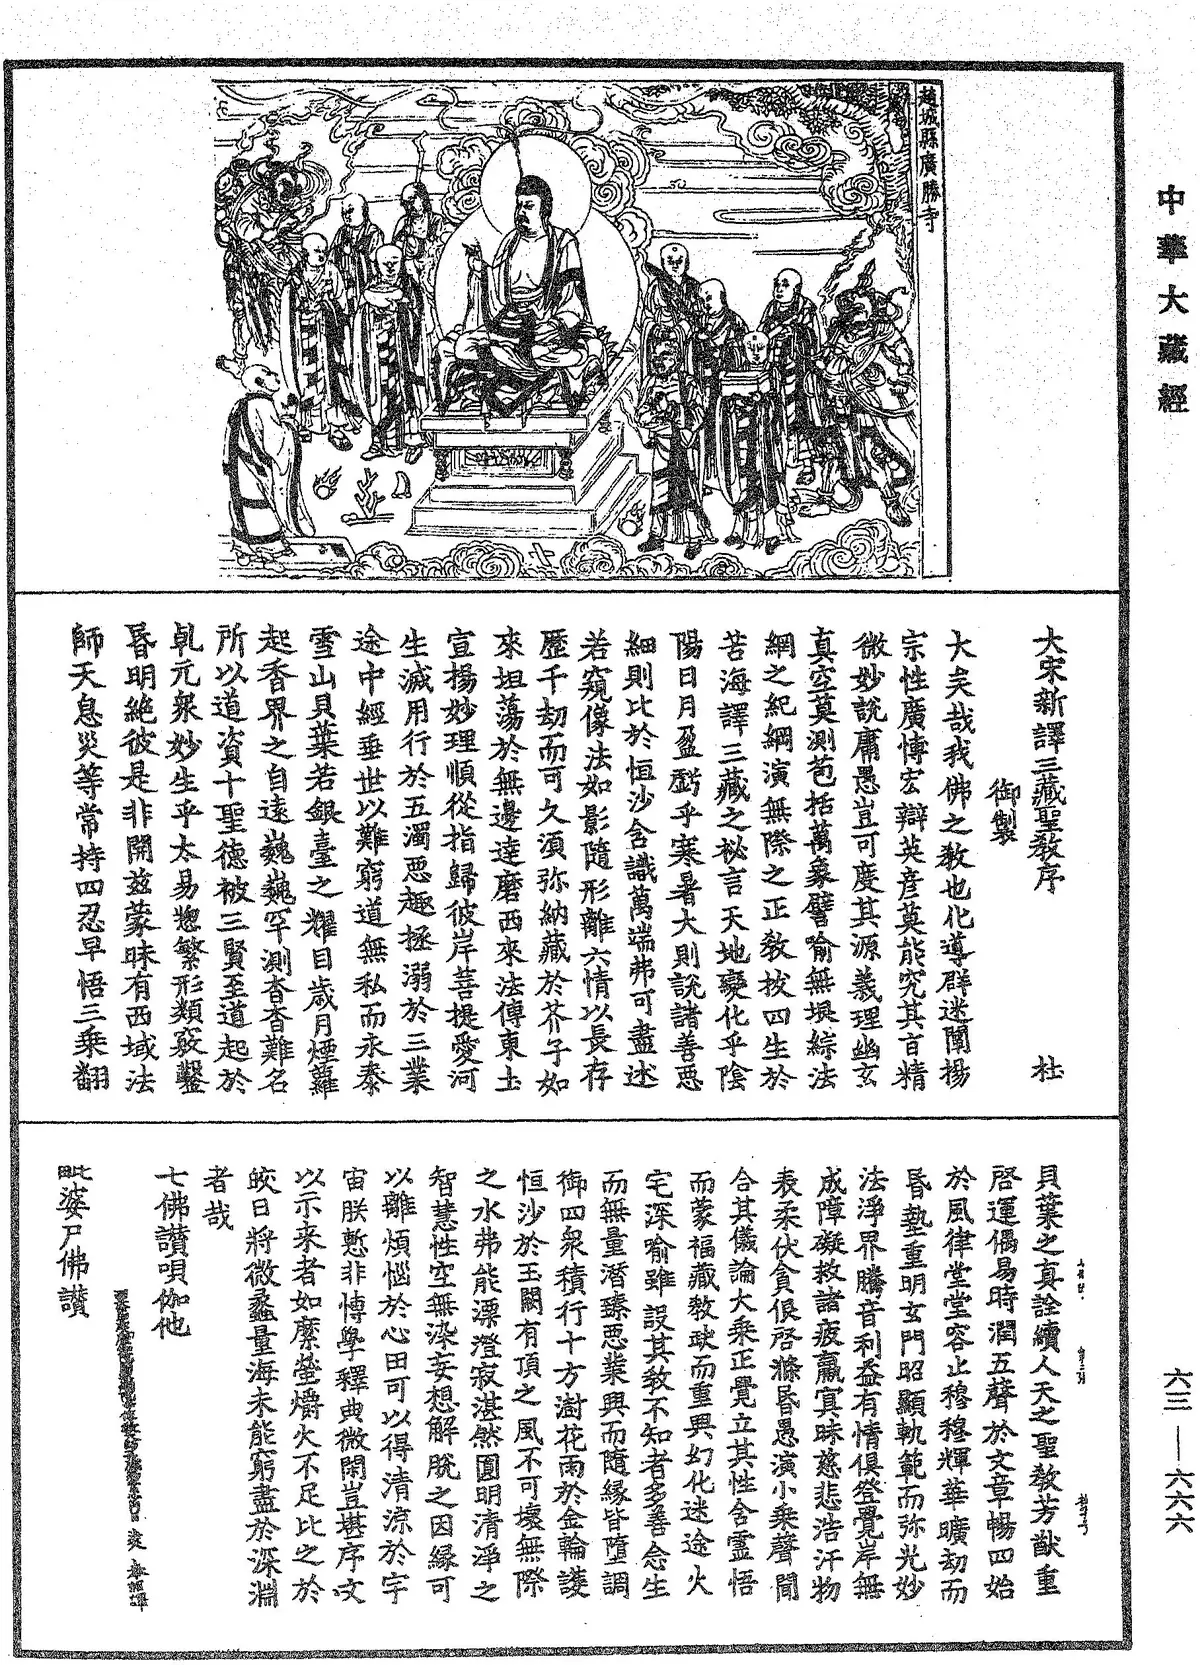 中華大藏經
趙城縣廣勝寺
大宋新譯三藏聖教序 杜
御製
大矣哉我佛之教也化導群迷闡揚
宗性廣博宏辯英彥莫能究其旨精
微妙說庸愚豈可度其源義理幽玄
真空莫測苞括萬象譬喻無垠綜法
網之紀綱演無際之正教拔四生於
苦海譯三藏之祕言天地變化乎陰
陽日月盈虧乎寒暑大則說諸善惡
細則比於恒沙含識萬端弗可盡述
若窺像法如影隨形離六情以長存
歷千劫而可久須弥納藏於芥子如
來坦蕩於無邊達磨西來法傳東土
宣揚妙理順從指歸彼岸菩提愛河
生滅用行於五濁惡趣拯溺於三業
途中經垂世以難窮道無私而永泰
雪山貝葉若銀臺之耀目歲月煙蘿
起香界之自遠巍巍罕測杳杳難名
所以道資十聖德被三賢至道起於
乹元眾妙生乎太易惣繁形類竅鑿
昏明絕彼是非開茲蒙昧有西域法
師天息災等常持四忍早悟三乘翻
貝葉之真詮續人天之聖教芳猷重
啓運偶昜時潤五聲於文章暢四始
於風律堂堂容止穆穆輝華曠劫而
昏墊重明玄門昭顯軌範而弥光妙
法淨界騰音利益有情俱登覺岸無
成障礙救諸疲羸冥昧慈悲浩汗物
表柔伏貪佷啓滌昏愚演小乘聲聞
合其儀論大乘正覺立其性含靈悟
而蒙福藏教缺而重興幻化迷途火
宅深喻雖設其教不知者多善念生
而無量潛臻惡業興而隨緣皆墮調
御四眾積行十方澍花雨於金輪護
恒沙於玉闕有頂之風不可壞無際
之水弗能漂澄寂湛然圓明清淨之
智慧性空無染妄想解脫之因緣可
以離煩惱於心田可以得清涼於宇
宙朕慙非博學釋典微閑豈堪序文
以示來者如縻螢爝火不足比之於
皎日將微蠡量海未能窮盡於深淵
者哉
七佛讃唄伽他
毗婆尸佛讃
六三—六六六